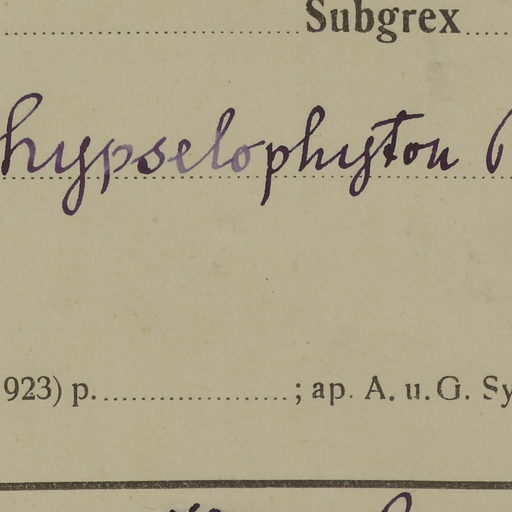 Subgrex
hypselophyton
923) p. ; ap. A. u. G. Sy